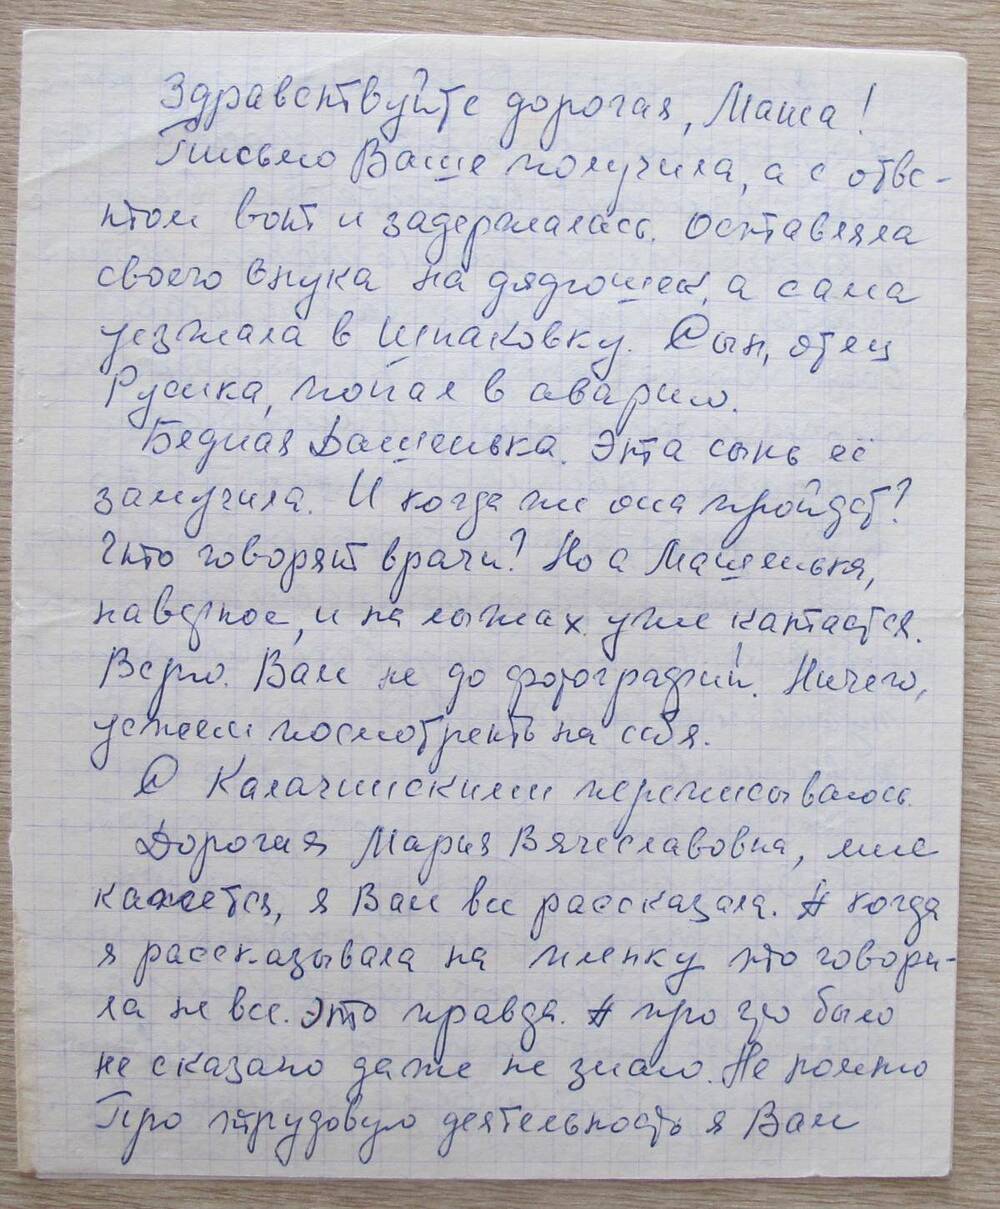 Здравствуйте дорогая, Маша!
Письмо Ваше получила, а с отве-
том вот и задержалась. Оставляла
своего внука на дядюшек, а сама
уезжала в Шпаковку. Сын, отец
Русика, попал в аварию.
Бедная Дашенька. Эта сыпь её
замучила. И когда же она пройдет?
Что говорят врачи? Но а Машенька,
наверное, и на лыжах уже катается.
Верю. Вам не до фотографий. Ничего,
успеем посмотреть на себя.
С Калачинскими переписываюсь.
Дорогая Мария Вячеславовна, мне
кажется, я Вам все рассказала. А когда
я рассказывала на пленку то говори-
ла не все. Это правда. А про что было
не сказано даже не знаю. Не помню
Про трудовую деятельность я Вам